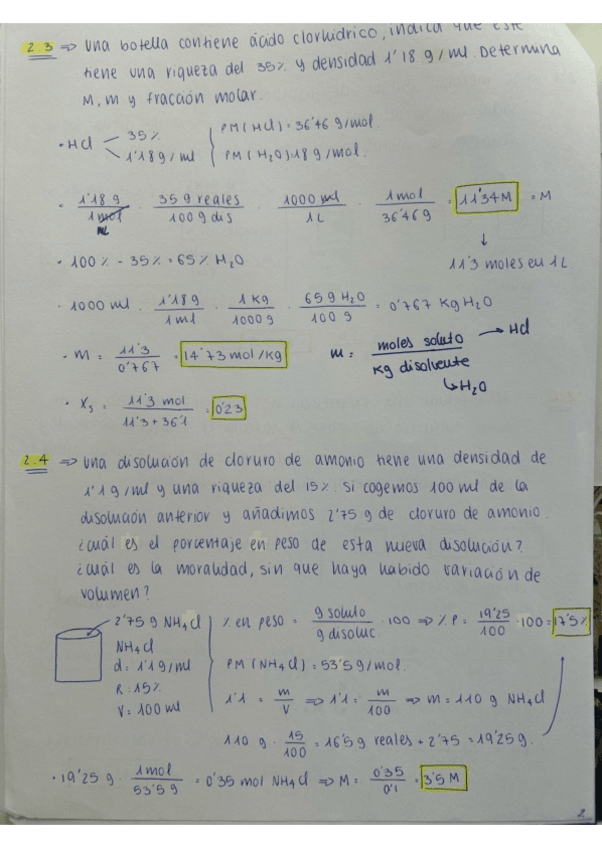 2.3 => Una botella contiene ácido clorhídrico, indica que este
tiene una riqueza del 35% y densidad 1'18 g/ml. Determina
M, m y fracción molar.
· HCl 35% PM (HCl) = 36'46 g/mol.
1'18 g/ml PM (H₂O) 18 g/mol.
= 1'18 g / 1 mol ml · 35 g reales / 100 g dis · 1000 ml / 1L · 1 mol / 36'46 g = 11'34 M = M
↓
11'3 moles en 1L
· 100% - 35% = 65% H₂O
· 1000 ml · 1'18 g / 1 ml · 1 Kg / 1000 g · 65 g H₂O / 100 g = 0'767 Kg H₂O
· m = 11'3 / 0'767 = 14'73 mol/Kg m = moles soluto / Kg disolvente → HCl
↳ H₂O
· Xs = 11'3 mol / 11'3 + 36'1 = 0'23
2.4 => Una disolución de cloruro de amonio tiene una densidad de
1'1 g/ml y una riqueza del 15%. Si cogemos 100 ml de la
disolución anterior y añadimos 2'75 g de cloruro de amonio.
¿Cuál es el porcentaje en peso de esta nueva disolución?
¿Cuál es la moralidad, sin que haya habido variación de
volumen?
2'75 g NH₄Cl % en peso = g soluto / g disoluc · 100 => % P = 19'25 / 100 · 100 = 17'5%
NH₄Cl
d = 1'1 g/ml PM (NH₄Cl) = 53'5 g/mol.
R = 15%
V = 100 ml 1'1 = m / V => 1'1 = m / 100 => m = 110 g NH₄Cl
110 g · 15 / 100 = 16'5 g reales + 2'75 = 19'25 g.
· 19'25 g · 1 mol / 53'5 g = 0'35 mol NH₄Cl => M = 0'35 / 0'1 = 3'5 M
2